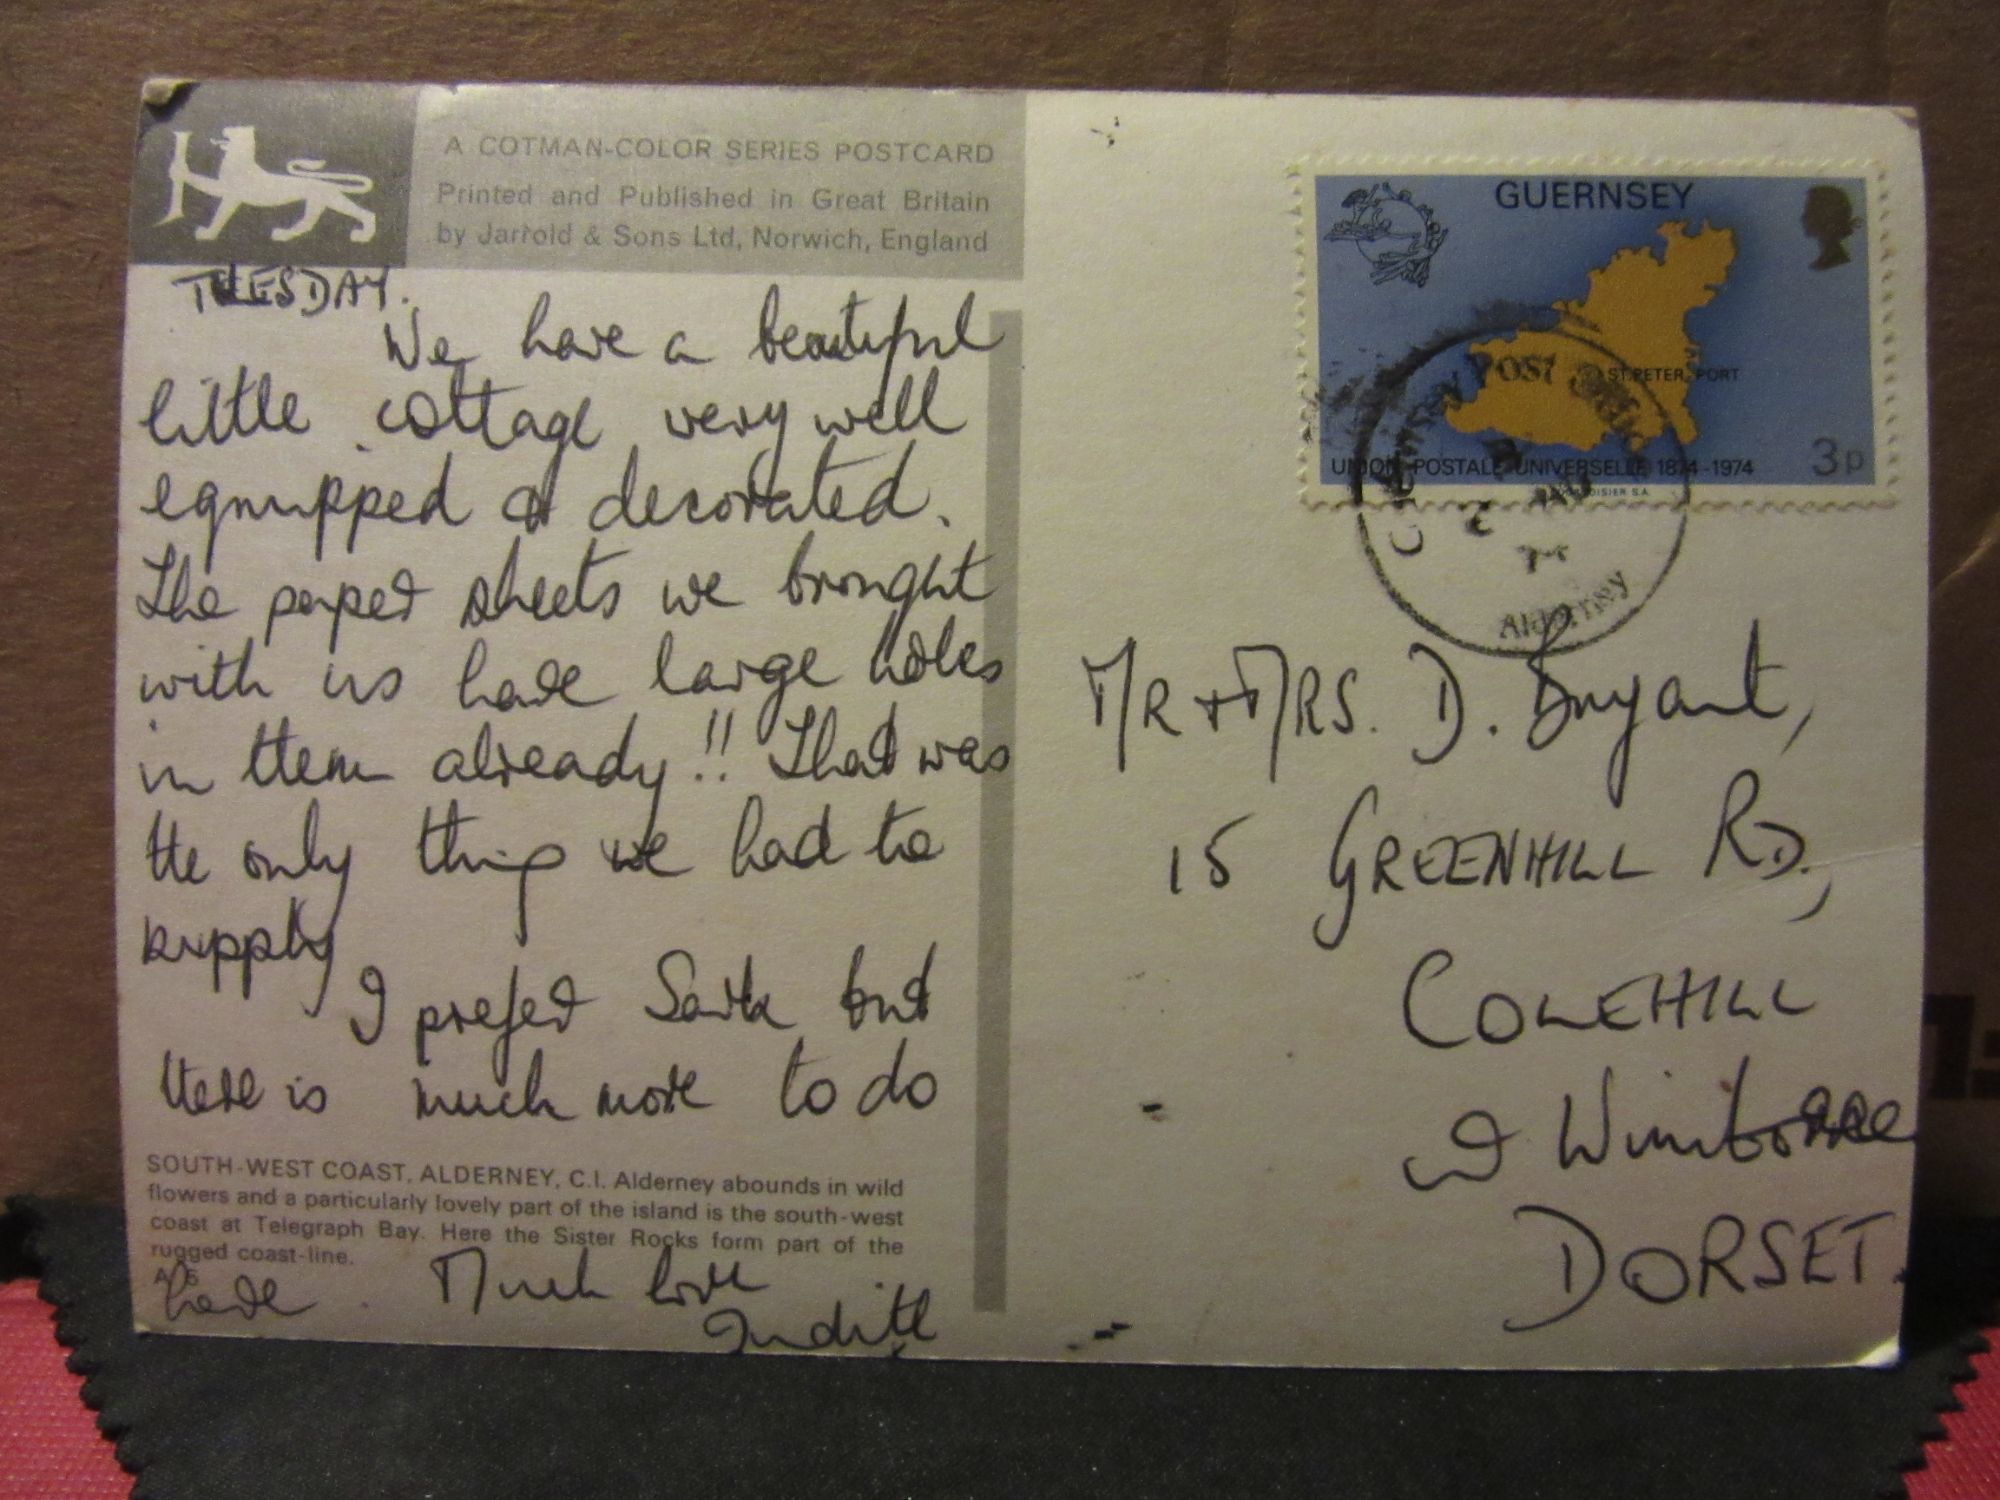 A COTMAN-COLOR SERIES POSTCARD
Printed and Published in Great Britain
by Jarrold & Sons Ltd, Norwich, England
TUESDAY.
We have a beautiful
little cottage very well
equipped & decorated.
The paper sheets we brought
with us have large holes
in them already!! That was
the only thing we had to
supply
I prefer Sark but
there is much more to do
SOUTH-WEST COAST, ALDERNEY, C.I. Alderney abounds in wild
flowers and a particularly lovely part of the island is the south-west
coast at Telegraph Bay. Here the Sister Rocks form part of the
rugged coast-line.
here. Much love
Judith
GUERNSEY
ST. PETER PORT
UNION POSTALE UNIVERSELLE 1874-1974
3p
Guernsey Post Office
Alderney
MR + MRS. D. Bryant,
15 GREENHILL RD,
COLEHILL
Wimborne
DORSET.